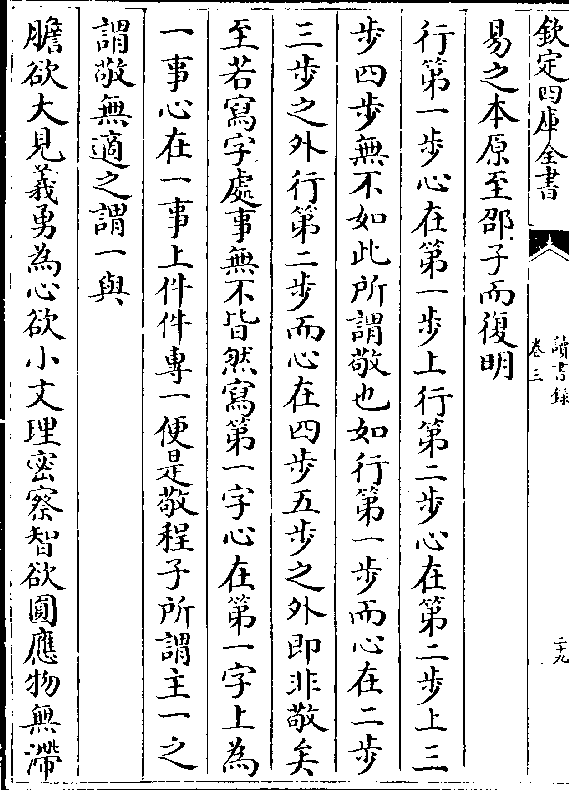 欽定四庫全書
讀書錄
卷三
二十九
易之本原至邵子而復明
行第一步心在第一步上行第二步心在第二步上三
步四步無不如此所謂敬也如行第一步而心在二步
三步之外行第二步而心在四步五步之外即非敬矣
至若寫字處事無不皆然寫第一字心在第一字上為
一事心在一事上件件專一便是敬程子所謂主一之
謂敬無適之謂一與
膽欲大見義勇為心欲小文理密察智欲圓應物無滯